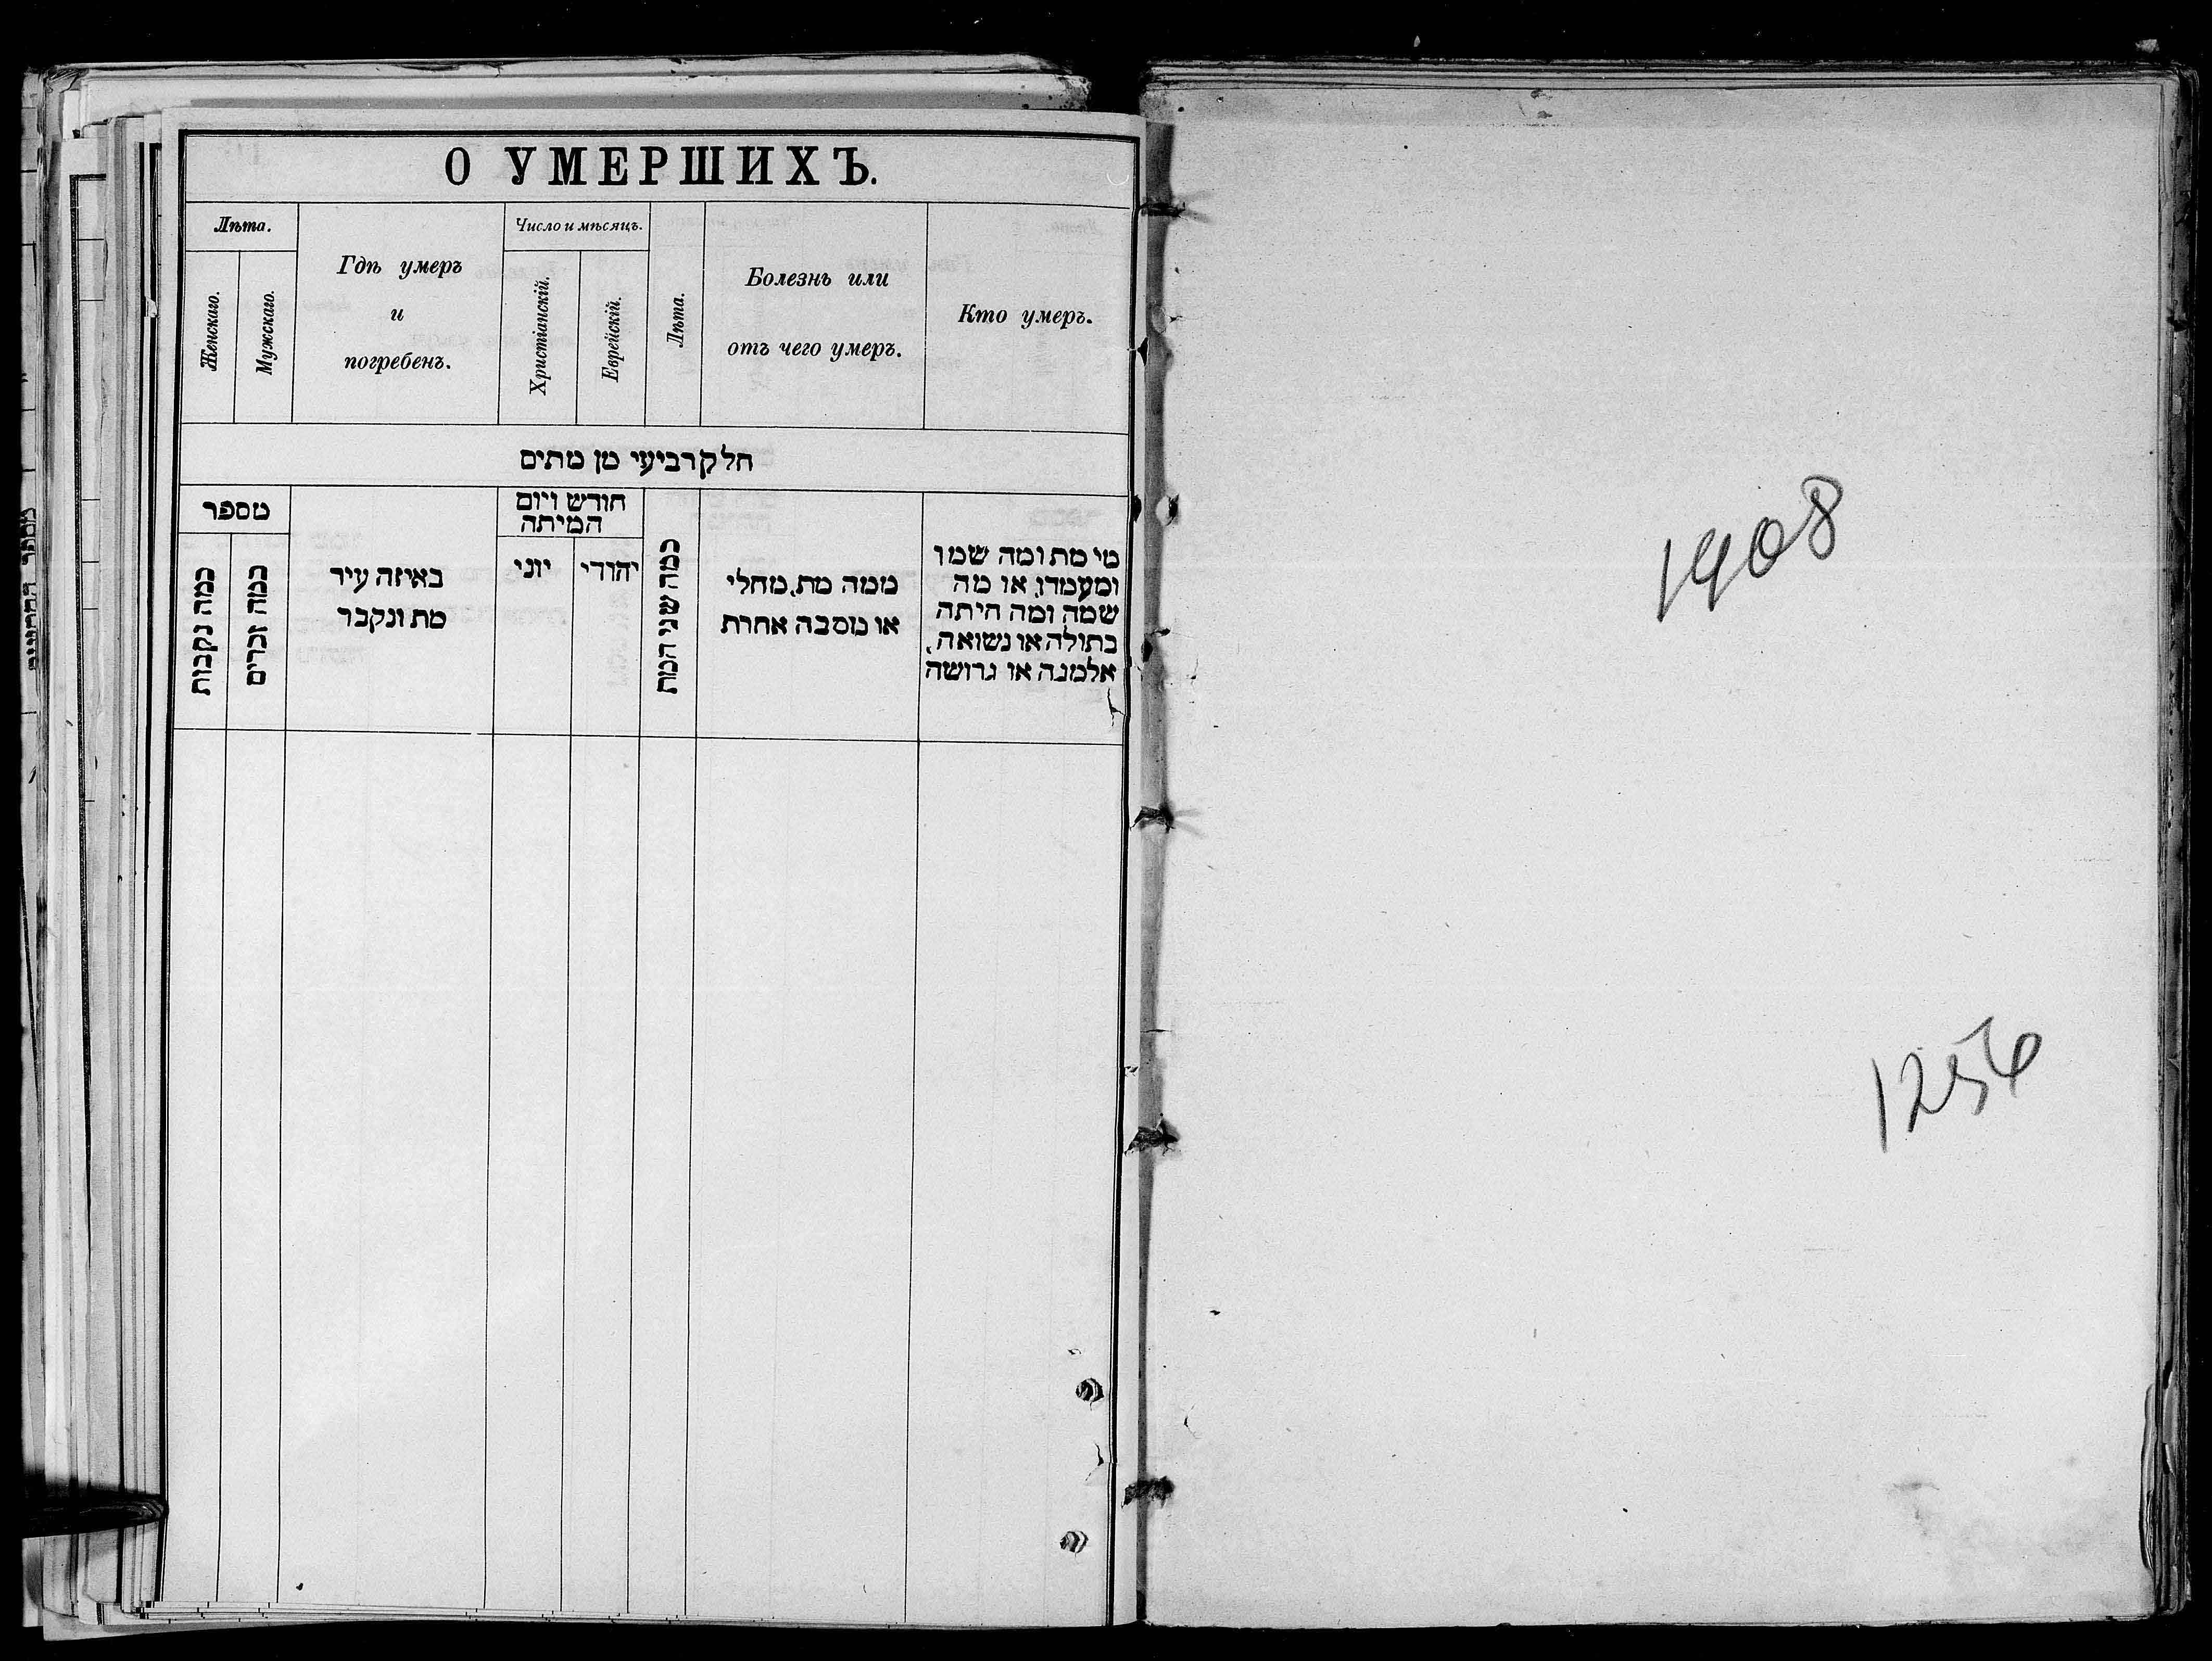 О УМЕРШИХЪ.
Лѣта.
Женскаго.
Мужскаго.
Гдѣ умеръ
и
погребенъ.
Число и мѣсяцъ.
Христіанскій.
Еврейскій.
Лѣта.
Болезнь или
отъ чего умеръ.
Кто умеръ.
חלק רביעי מן מתים
מספר
כמה נקבות
כמה זכרים
באיזה עיר
מת ונקבר
חודש ויום
המיתה
יוני
יהודי
כמה שני המת
ממה מת, מחלי
או מסבה אחרת
מי מת ומה שמו
ומעמדו, או מה
שמה ומה היתה
בתולה או נשואה,
אלמנה או גרושה
1908
1256